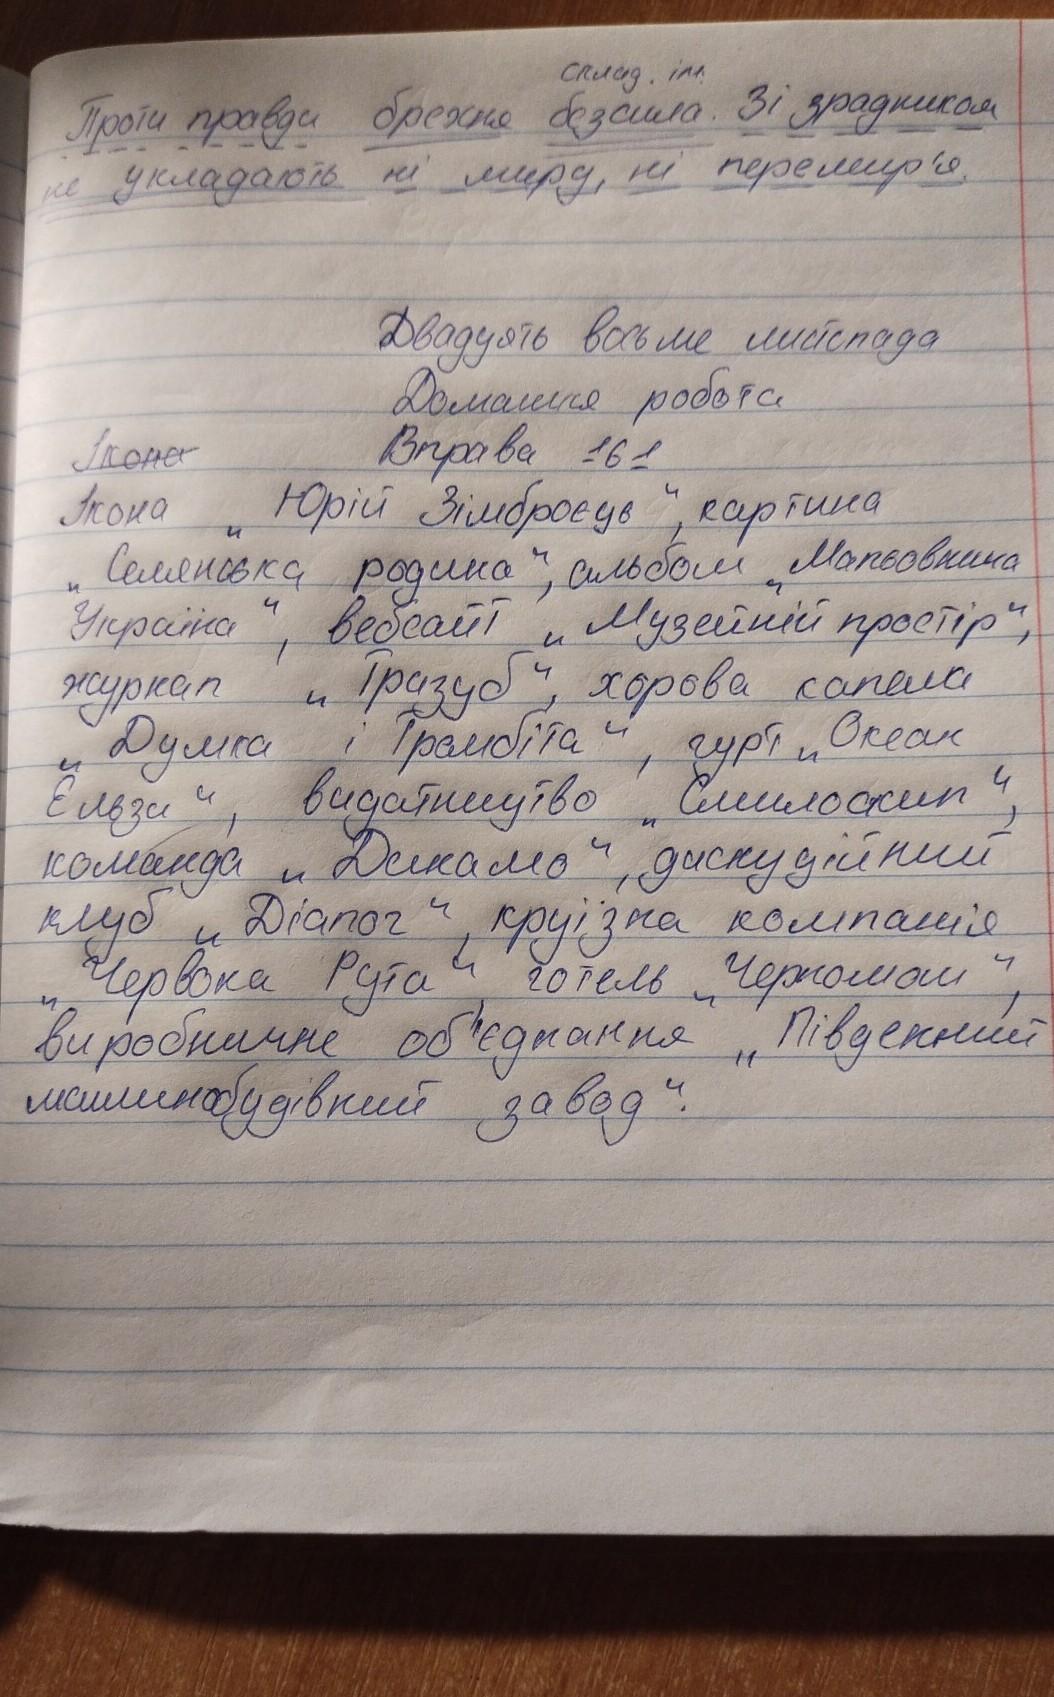 склад. ім.
Проти правди брехня безсила. Зі зрадником
не укладають ні миру, ні перемир'я.
Двадцять восьме листопада
Домашня робота
Ікона Вправа 161
Ікона „Юрій Зімброєць“, картина
„Селянська родина“, альбом „Мальовнича
Україна“, вебсайт „Музейній простір“,
журнал „Тризуб“, хорова капела
„Думка і Трембіта“, гурт „Океан
Ельзи“, видатництво „Смилоскип“,
команда „Динамо“, дискудійний
клуб „Діалог“, круїзна компанія
„Червона Рута“, готель „Чорномом“,
виробниче об'єднання „Південний
машинобудівний завод“.